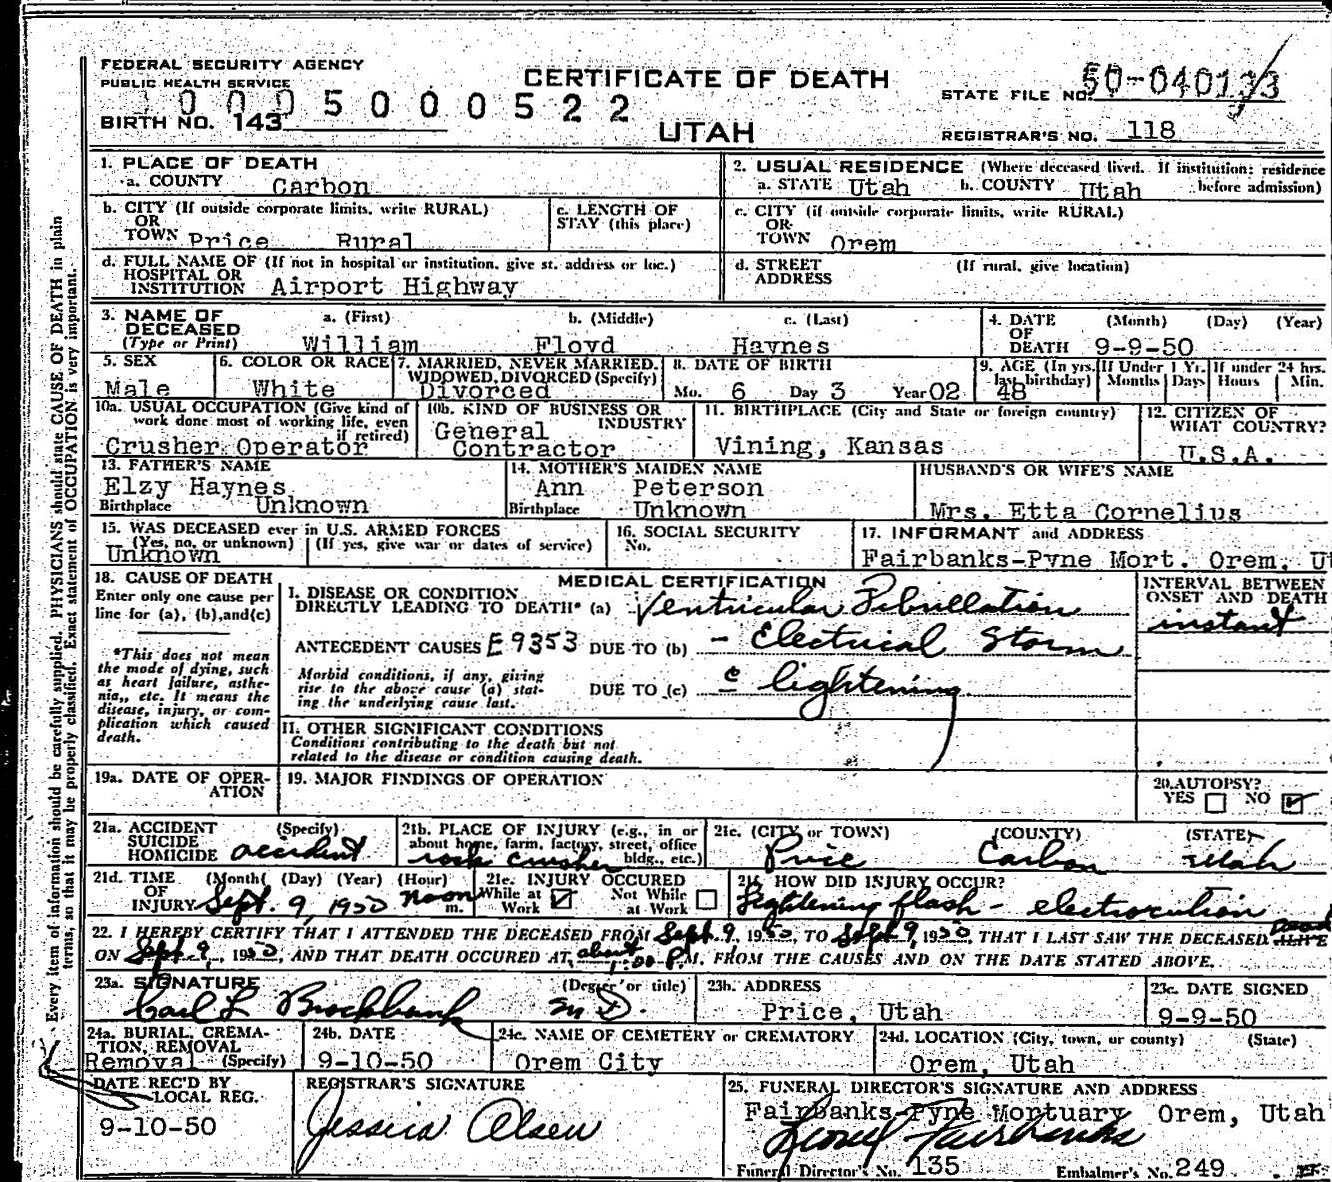 FEDERAL SECURITY AGENCY
PUBLIC HEALTH SERVICE
CERTIFICATE OF DEATH
UTAH
STATE FILE NO. 50-040133
1 0 0 0 5 0 0 0 5 2 2
BIRTH NO. 143
REGISTRAR'S NO. 118
Every item of information should be carefully supplied. PHYSICIANS should state CAUSE OF DEATH in plain
terms, so that it may be properly classified. Exact statement of OCCUPATION is very important.
1. PLACE OF DEATH
a. COUNTY Carbon
2. USUAL RESIDENCE (Where deceased lived. If institution: residence
a. STATE Utah b. COUNTY Utah before admission)
b. CITY (If outside corporate limits, write RURAL)
OR
TOWN Price Rural
c. LENGTH OF
STAY (this place)
c. CITY (if outside corporate limits, write RURAL)
OR
TOWN Orem
d. FULL NAME OF (If not in hospital or institution, give st. address or loc.)
HOSPITAL OR
INSTITUTION Airport Highway
d. STREET (If rural, give location)
ADDRESS
3. NAME OF DECEASED
(Type or Print)
a. (First) b. (Middle) c. (Last)
William Floyd Haynes
4. DATE (Month) (Day) (Year)
OF
DEATH 9-9-50
5. SEX
Male
6. COLOR OR RACE
White
7. MARRIED, NEVER MARRIED,
WIDOWED, DIVORCED (Specify)
Divorced
8. DATE OF BIRTH
Mo. 6 Day 3 Year 02
9. AGE (In yrs. last birthday)
48
If Under 1 Yr.
Months Days
If under 24 hrs.
Hours Min.
10a. USUAL OCCUPATION (Give kind of
work done most of working life, even
if retired)
Crusher Operator
10b. KIND OF BUSINESS OR
INDUSTRY
General
Contractor
11. BIRTHPLACE (City and State or foreign country)
Vining, Kansas
12. CITIZEN OF
WHAT COUNTRY?
U.S.A.
13. FATHER'S NAME
Elzy Haynes
Birthplace Unknown
14. MOTHER'S MAIDEN NAME
Ann Peterson
Birthplace Unknown
HUSBAND'S OR WIFE'S NAME
Mrs. Etta Cornelius
15. WAS DECEASED ever in U.S. ARMED FORCES
(Yes, no, or unknown) (If yes, give war or dates of service)
Unknown
16. SOCIAL SECURITY
No.
17. INFORMANT and ADDRESS
Fairbanks-Pyne Mort. Orem, U
18. CAUSE OF DEATH
Enter only one cause per
line for (a), (b), and (c)
*This does not mean
the mode of dying, such
as heart failure, asthe-
nia, etc. It means the
disease, injury, or com-
plication which caused
death.
MEDICAL CERTIFICATION
I. DISEASE OR CONDITION
DIRECTLY LEADING TO DEATH* (a) Ventricular Fibrillation
ANTECEDENT CAUSES E9353 DUE TO (b) - Electrical Storm
Morbid conditions, if any, giving
rise to the above cause (a) stat-
ing the underlying cause last.
DUE TO (c) c lightening
INTERVAL BETWEEN
ONSET AND DEATH
instant
II. OTHER SIGNIFICANT CONDITIONS
Conditions contributing to the death but not
related to the disease or condition causing death.
19a. DATE OF OPER-
ATION
19. MAJOR FINDINGS OF OPERATION
20. AUTOPSY?
YES NO
21a. ACCIDENT (Specify)
SUICIDE
HOMICIDE accident
21b. PLACE OF INJURY (e.g., in or
about home, farm, factory, street, office
bldg., etc.)
rock crusher
21c. (CITY or TOWN) (COUNTY) (STATE)
Price Carbon Utah
21d. TIME (Month) (Day) (Year) (Hour)
OF
INJURY Sept. 9, 1950 noon m.
21e. INJURY OCCURED
While at Work Not While at Work
21f. HOW DID INJURY OCCUR?
Lightening flash - electrocution
22. I HEREBY CERTIFY THAT I ATTENDED THE DECEASED FROM Sept. 9, 1950, TO Sept 9, 1950, THAT I LAST SAW THE DECEASED dead ALIVE
ON Sept 9, 1950, AND THAT DEATH OCCURED AT about 1:00 P.M. FROM THE CAUSES AND ON THE DATE STATED ABOVE.
23a. SIGNATURE (Degree or title)
Carl L Brockbank M D.
23b. ADDRESS
Price, Utah
23c. DATE SIGNED
9-9-50
24a. BURIAL, CREMA-
TION, REMOVAL
Removal (Specify)
24b. DATE
9-10-50
24c. NAME OF CEMETERY or CREMATORY
Orem City
24d. LOCATION (City, town, or county) (State)
Orem, Utah
DATE REC'D BY
LOCAL REG.
9-10-50
REGISTRAR'S SIGNATURE
Jessica Olsen
25. FUNERAL DIRECTOR'S SIGNATURE AND ADDRESS
Fairbanks-Pyne Mortuary Orem, Utah
Fairbanks
Funeral Director's No. 135 Embalmer's No. 249